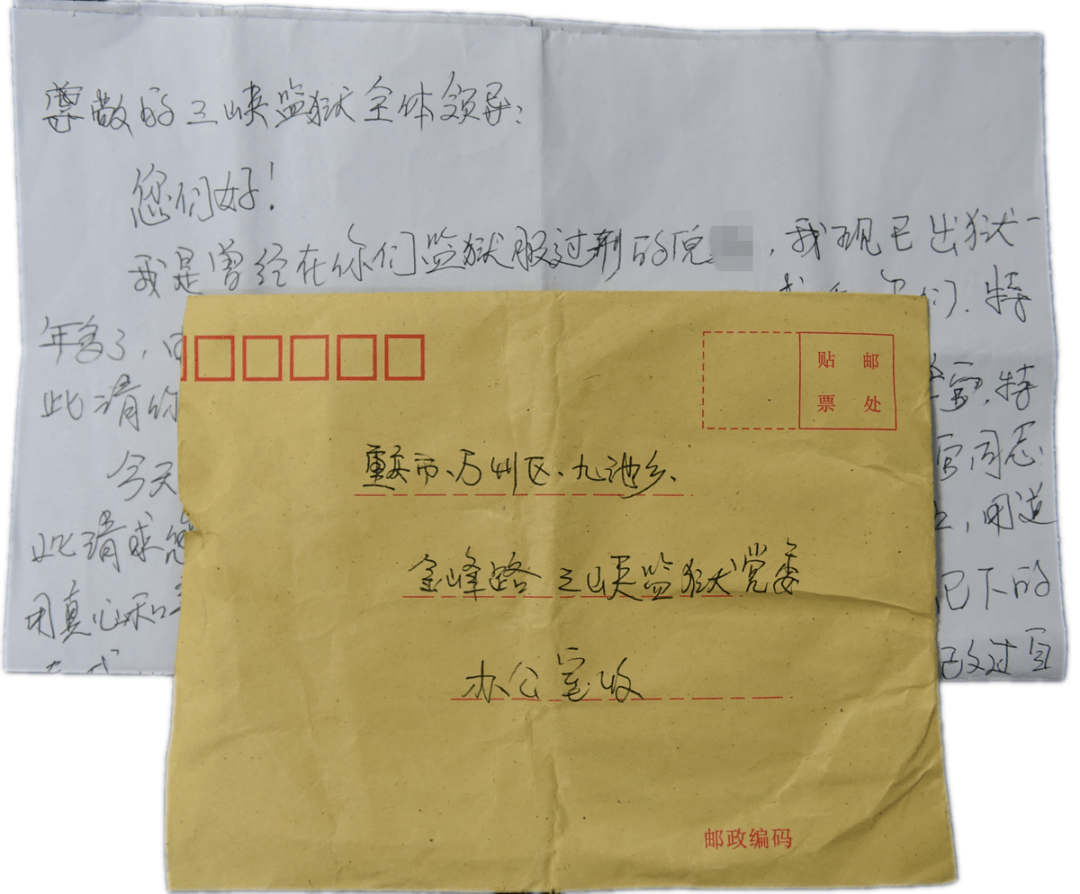 尊敬的三峡监狱全体领导：
您们好！
我是曾经在你们监狱服过刑的，我现已出狱一
年多了，们．特
此请你，特
今天同志
此请求您，用道
用真心和己下的
改过自
贴邮
票处
重庆市、万州区、九池乡、
金峰路三峡监狱党委
办公室收
邮政编码